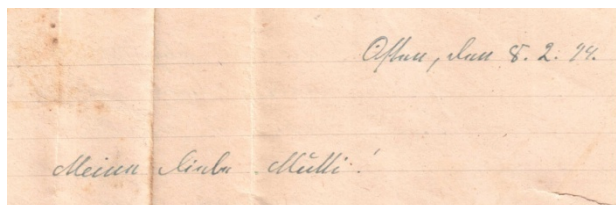 Osten, den 8. 2. 44.
Meine liebe Mutti!